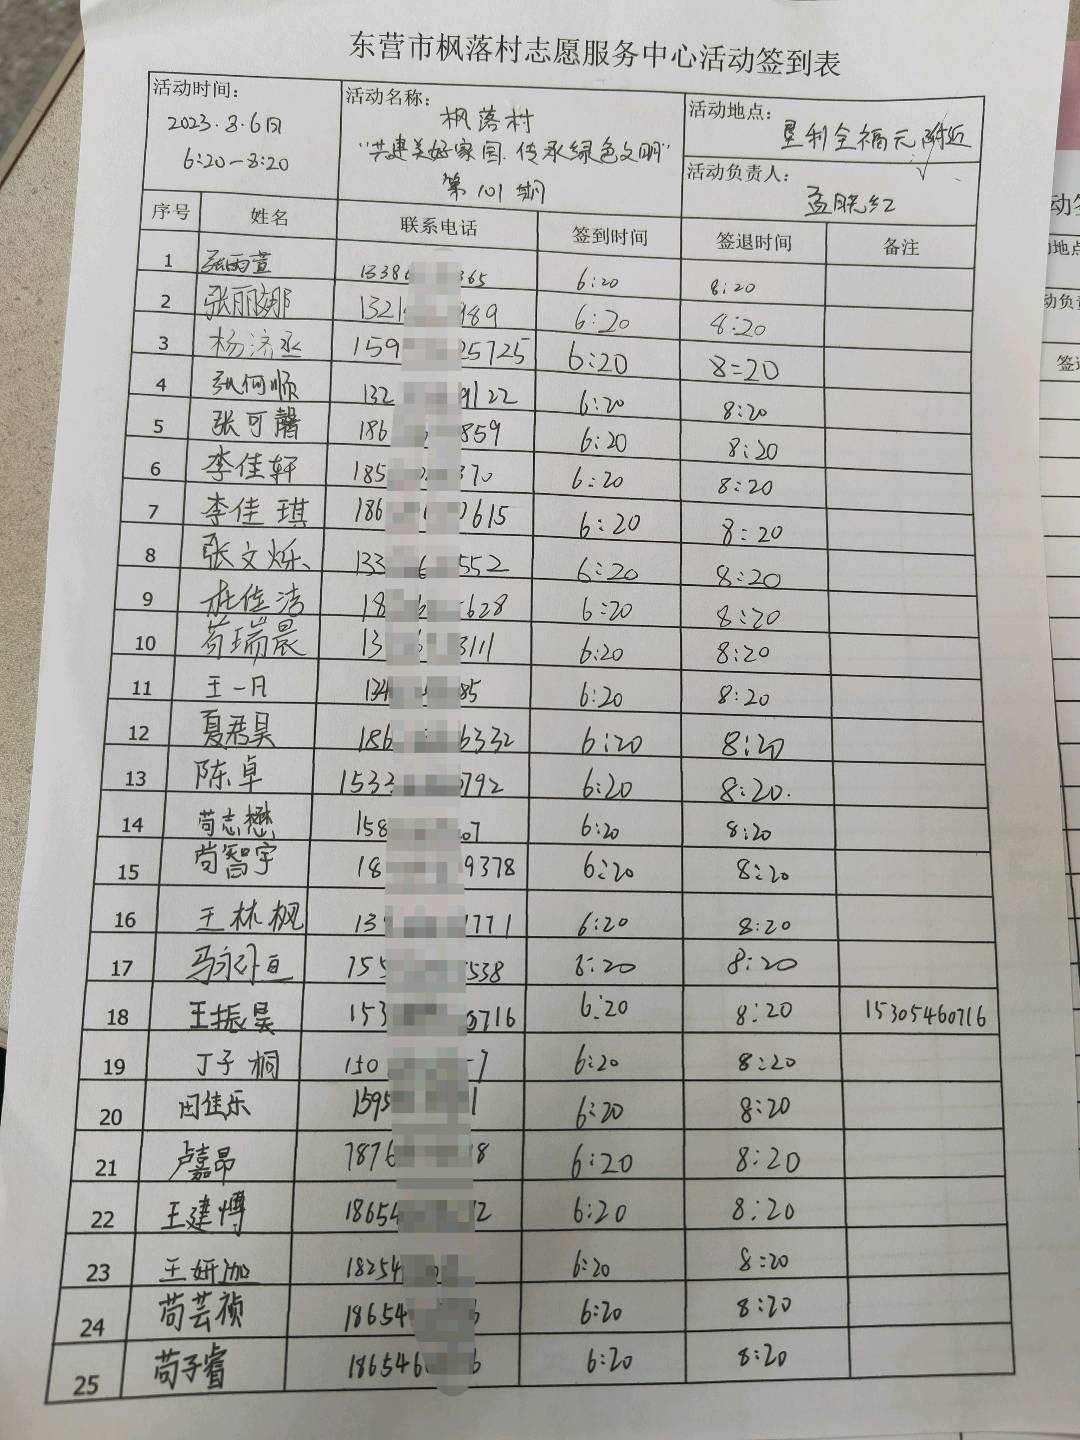 东营市枫落村志愿服务中心活动签到表
活动时间：
2023.8.6日
6:20-8:20
活动名称：
枫落村
“共建美好家园.传承绿色文明”
第101期
活动地点：
垦利全福元附近
活动负责人：
孟晓红
序号 姓名 联系电话 签到时间 签退时间 备注
1 张雨萱 1338 365 6:20 8:20
2 张丽娜 132 989 6:20 8:20
3 杨济丞 159 25725 6:20 8=20
4 张何顺 132 9122 6:20 8:20
5 张可馨 186 859 6:20 8:20
6 李佳轩 185 370 6:20 8:20
7 李佳琪 186 0615 6:20 8:20
8 张文烁 133 6 552 6:20 8:20
9 杜佳洁 18 628 6:20 8:20
10 苟瑞晨 13 3111 6:20 8:20
11 王一凡 134 85 6:20 8:20
12 夏君昊 186 6332 6:20 8:20
13 陈卓 1533 0792 6:20 8:20.
14 苟志懋 158 07 6:20 8:20
15 尚智宇 18 9378 6:20 8:20
16 王林枫 13 1771 6:20 8:20
17 马永 155 538 8:20 8:20
18 王振昊 153 0716 6:20 8:20 15305460716
19 丁子桐 150 7 6:20 8:20
20 田佳乐 1595 1 6:20 8:20
21 卢嘉昂 7876 18 6:20 8:20
22 王建博 18654 2 6:20 8:20
23 王妍泇 18254 6:20 8:20
24 苟芸祯 18654 6:20 8:20
25 苟子睿 186546 6 6:20 8:20
动签
地点
动负责
签退